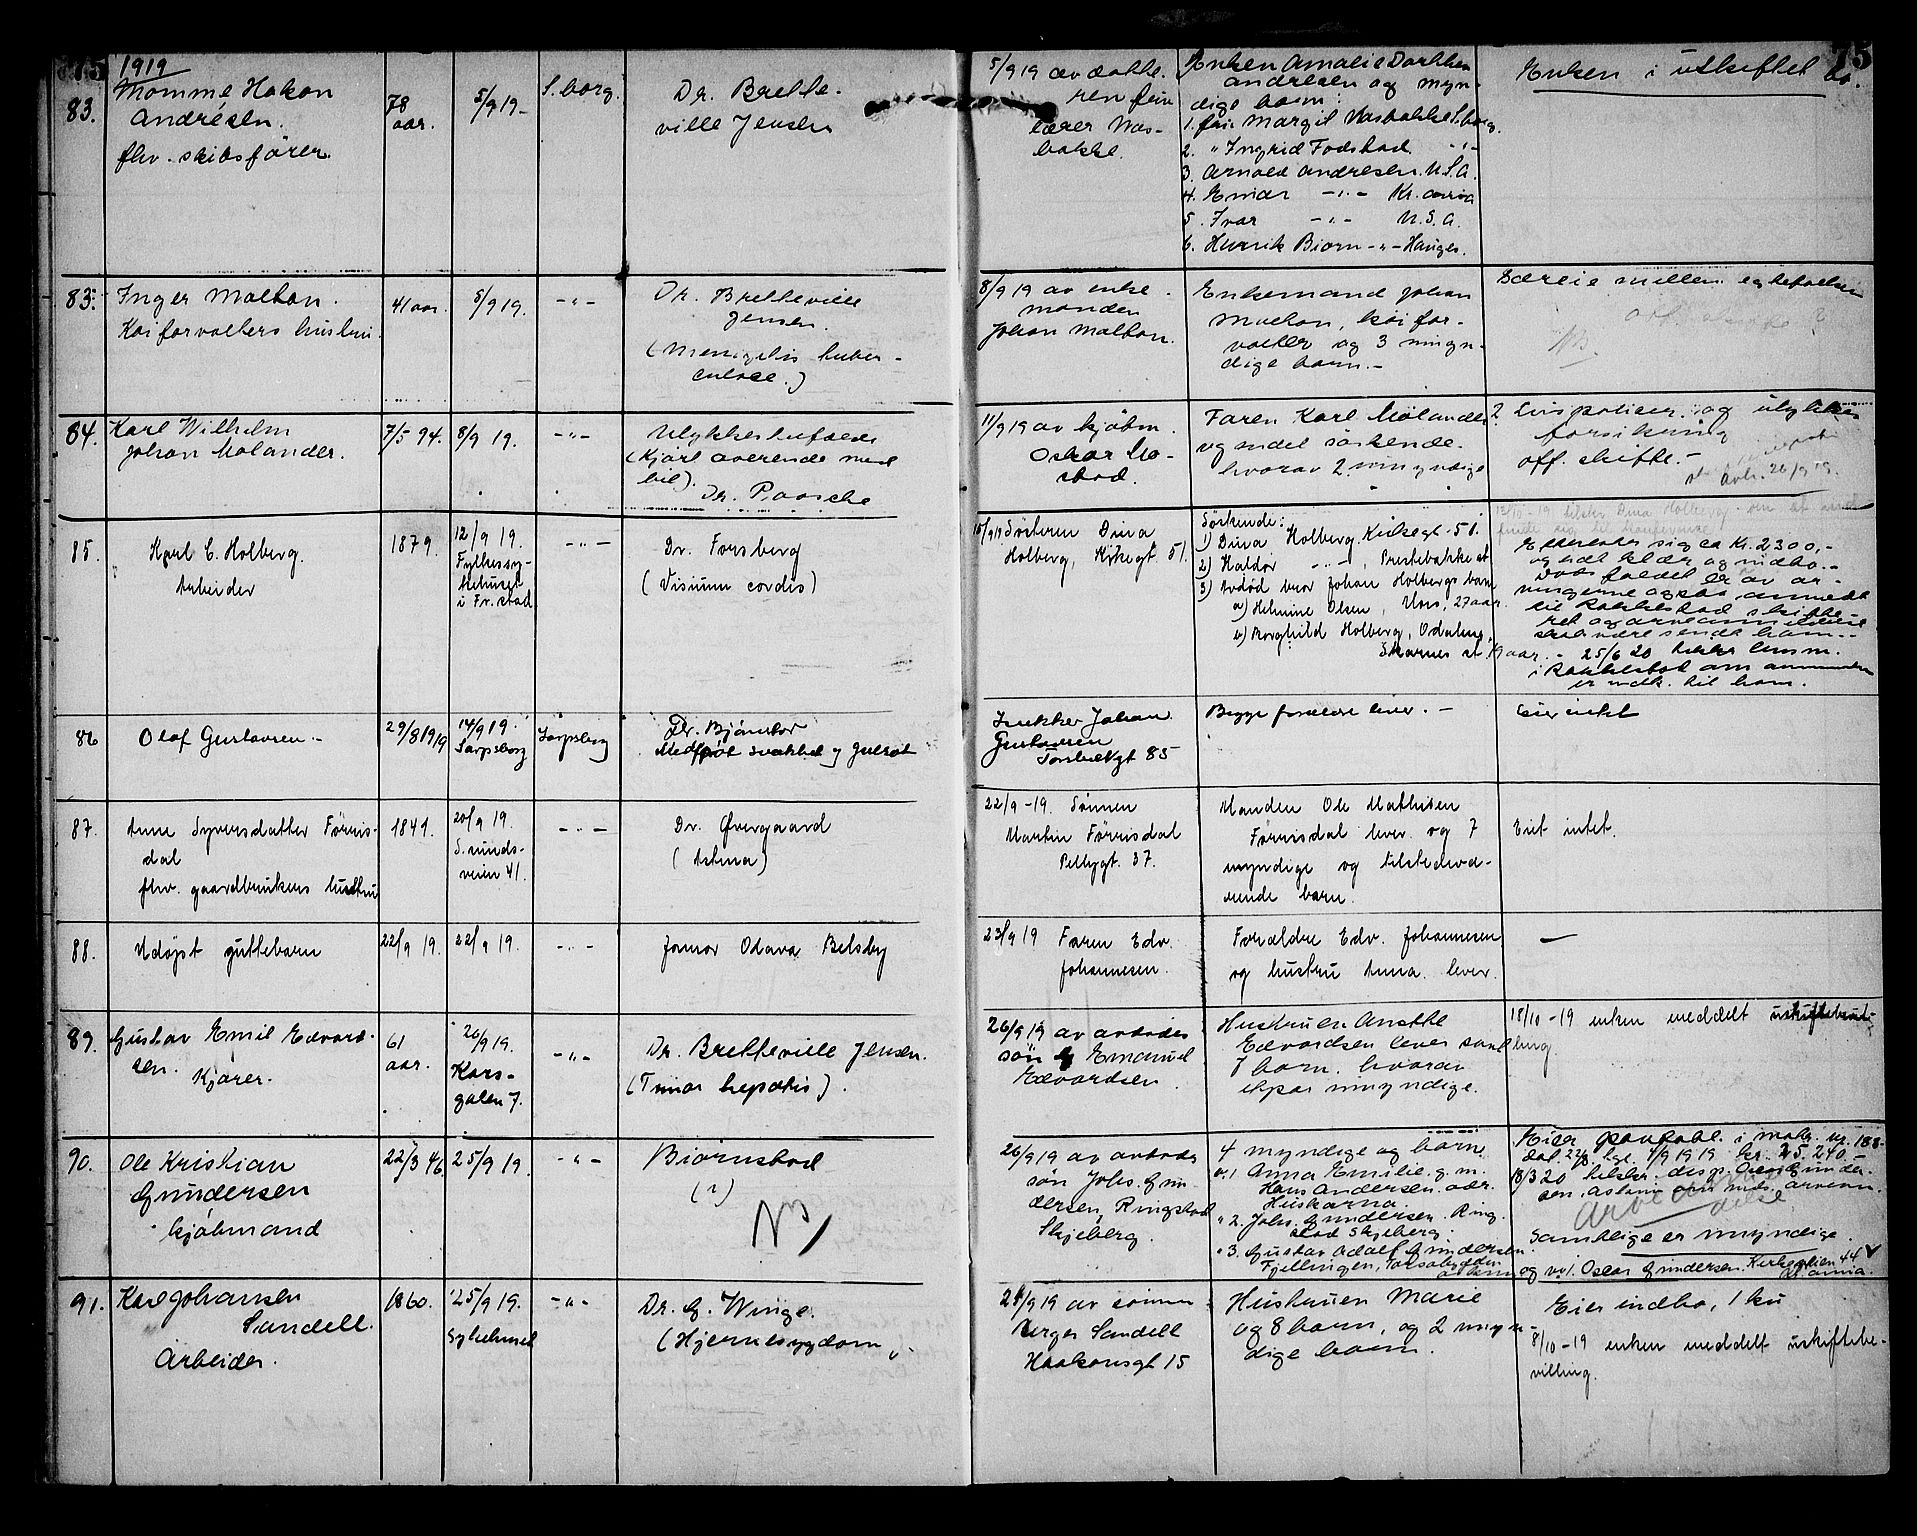 75
1919
83. Momme Hakon
Andresen.
fhv. skibsfører.
78
aar.
5/9 19-
S.borg.
Dr. Brette-
ville Jensen
5/9 19 av datte-
ren fru
lærer Vas-
bakke.
Enken Amalie Dorthea
Andresen og myn-
dige barn:
1. fru Margit Vasbakke S.borg.
2. " Ingrid Fodstad -"-
3. Arnold Andresen U.S.A.
4. Einar -"- Kr.ania
5. Ivar -"- U.S.A.
6. Henrik Bjørn -"- Hauges.
Enken i uskiftet bo.
75
83. Inger Malton.
Kaiforvalters hustru.
41 aar.
5/9 19.
-"-
Dr. Bretteville
Jensen.
(Menigitis tuber-
culose.)
8/9 19 av enke-
manden
Johan Malton.
Enkemand Johan
Malton, kaifor-
valter og 3 umyn-
dige barn.-
Særeie mellem egtefolkene
NB.
84. Karl Wilhelm
Johan Molander.
7/5 94.
8/9 19.
-"-
Ulykkestilfælde
(Kjørt overende med
bil).
Dr. Paasche
11/9 19 av kjøbm.
Oskar Mo-
stad.
Faren Karl Molander
og endel søskende
hvorav 2 umyndige
2 Livspoliser og ulykkes
forsikring
off. skifte.-
avh. 26/9 19.
85. Karl C. Holberg.
Arbeider
1879.
12/9 19.
Fylkessy-
kehuset
i Fr.stad
-"-
Dr. Forsberg
(Visium cordis)
15/9 19 Søsteren Dina
Holberg, Kirkegt. 51.
Søskende:
1) Dina Holberg, Kirkegt. 51.
2) Haldor -"-, Prestebakke st
3) Avdød bror Johan Holbergs barn
a) Helmine Olsen, Moss, 27 aar.
b) Borghild Holberg, Odalen,
Skarnes st. 19 aar.
Efterlater sig ca Kr. 2300,-
og litt klær og indbo.-
Dødsfaldet er av ar-
vingerne ogsaa anmeldt
til Rakkestad skifte-
ret og arveanmeldelse
skal være sendt ham.-
- 25/6 20 lensm.
i Rakkestad om anmeldelsen
er indk. til ham.
86 Olaf Gustavsen.-
29/8 1919
14/9 19.
Sarpsborg
Sarpsborg
Dr. Bjørnstad
Medfødt svakhet og gulsot
Johan
Gustavsen
85
Begge forældre lever.-
Eier intet
87. Anne Syversdatter Førris-
dal
fhv. gaardbrukers hustru
1841.
20/9 19.
S.unds-
veien 41.
-"-
Dr. Øvergaard
(Astma)
22/9-19. Sønnen
Martin Førrisdal
Pellygt. 37.
Manden Ole Mathisen
Førrisdal lever og 7
myndige og tilstedevæ-
rende barn.
Eiet intet.
88. Udøpt guttebarn
22/9 19.
22/9 19.
-"-
Jomor Odava Belsby
23/9 19 Faren Edv.
Johannesen.
Forældre Edv. Johannesen
og hustru Anna. lever.
—
89. Gustav Emil Edvard-
sen.
Kjører.
61
aar.
20/9 19.
Kors-
gaten 7.
-"-
Dr. Bretteville Jensen.
(Tumor hepatis).
26/9 19 av avdødes
søn Emanuel
Edvardsen.
Hustruen Anethe
Edvardsen lever samt
7 barn. hvorav
et par umyndige.
18/10-19 enken meddelt uskiftebevil-
ling.
90. Ole Kristian
Gundersen
kjøbmand
22/3 46
25/9 19.
-"-
Bjørnstad
(?)
NB
26/9 19 av avdødes
søn Johs. Gun-
dersen, Ringstad
Skjeberg.
4 myndige og barn
1 Anna Emilie g.m.
Hans Andersen. adr.
" 2. Johs. Gundersen. Ring-
stad Skjeberg.
" 3. Gustav Adolf Gundersen
Fjellingen,
og nr. 1. Oscar Gundersen. Kirkeveien 44
Kr.ania.
Eier i matr. nr. 188-
kr. 25.240.-
18/3 20
Samtlige er myndige.
91. Karl Johansen
Sandell.
Arbeider.
1860.
25/9 19.
Sykehuset
-"-
Dr. G. Winge.
(Hjernesygdom).
29/9 19 av sønnen
Birger Sandell
Haakonsgt 15
Hustruen Marie
og 8 barn, og 2 umyn-
dige barn.
Eier indbo, 1 ku
8/10-19 enken meddelt uskiftebe-
villing.